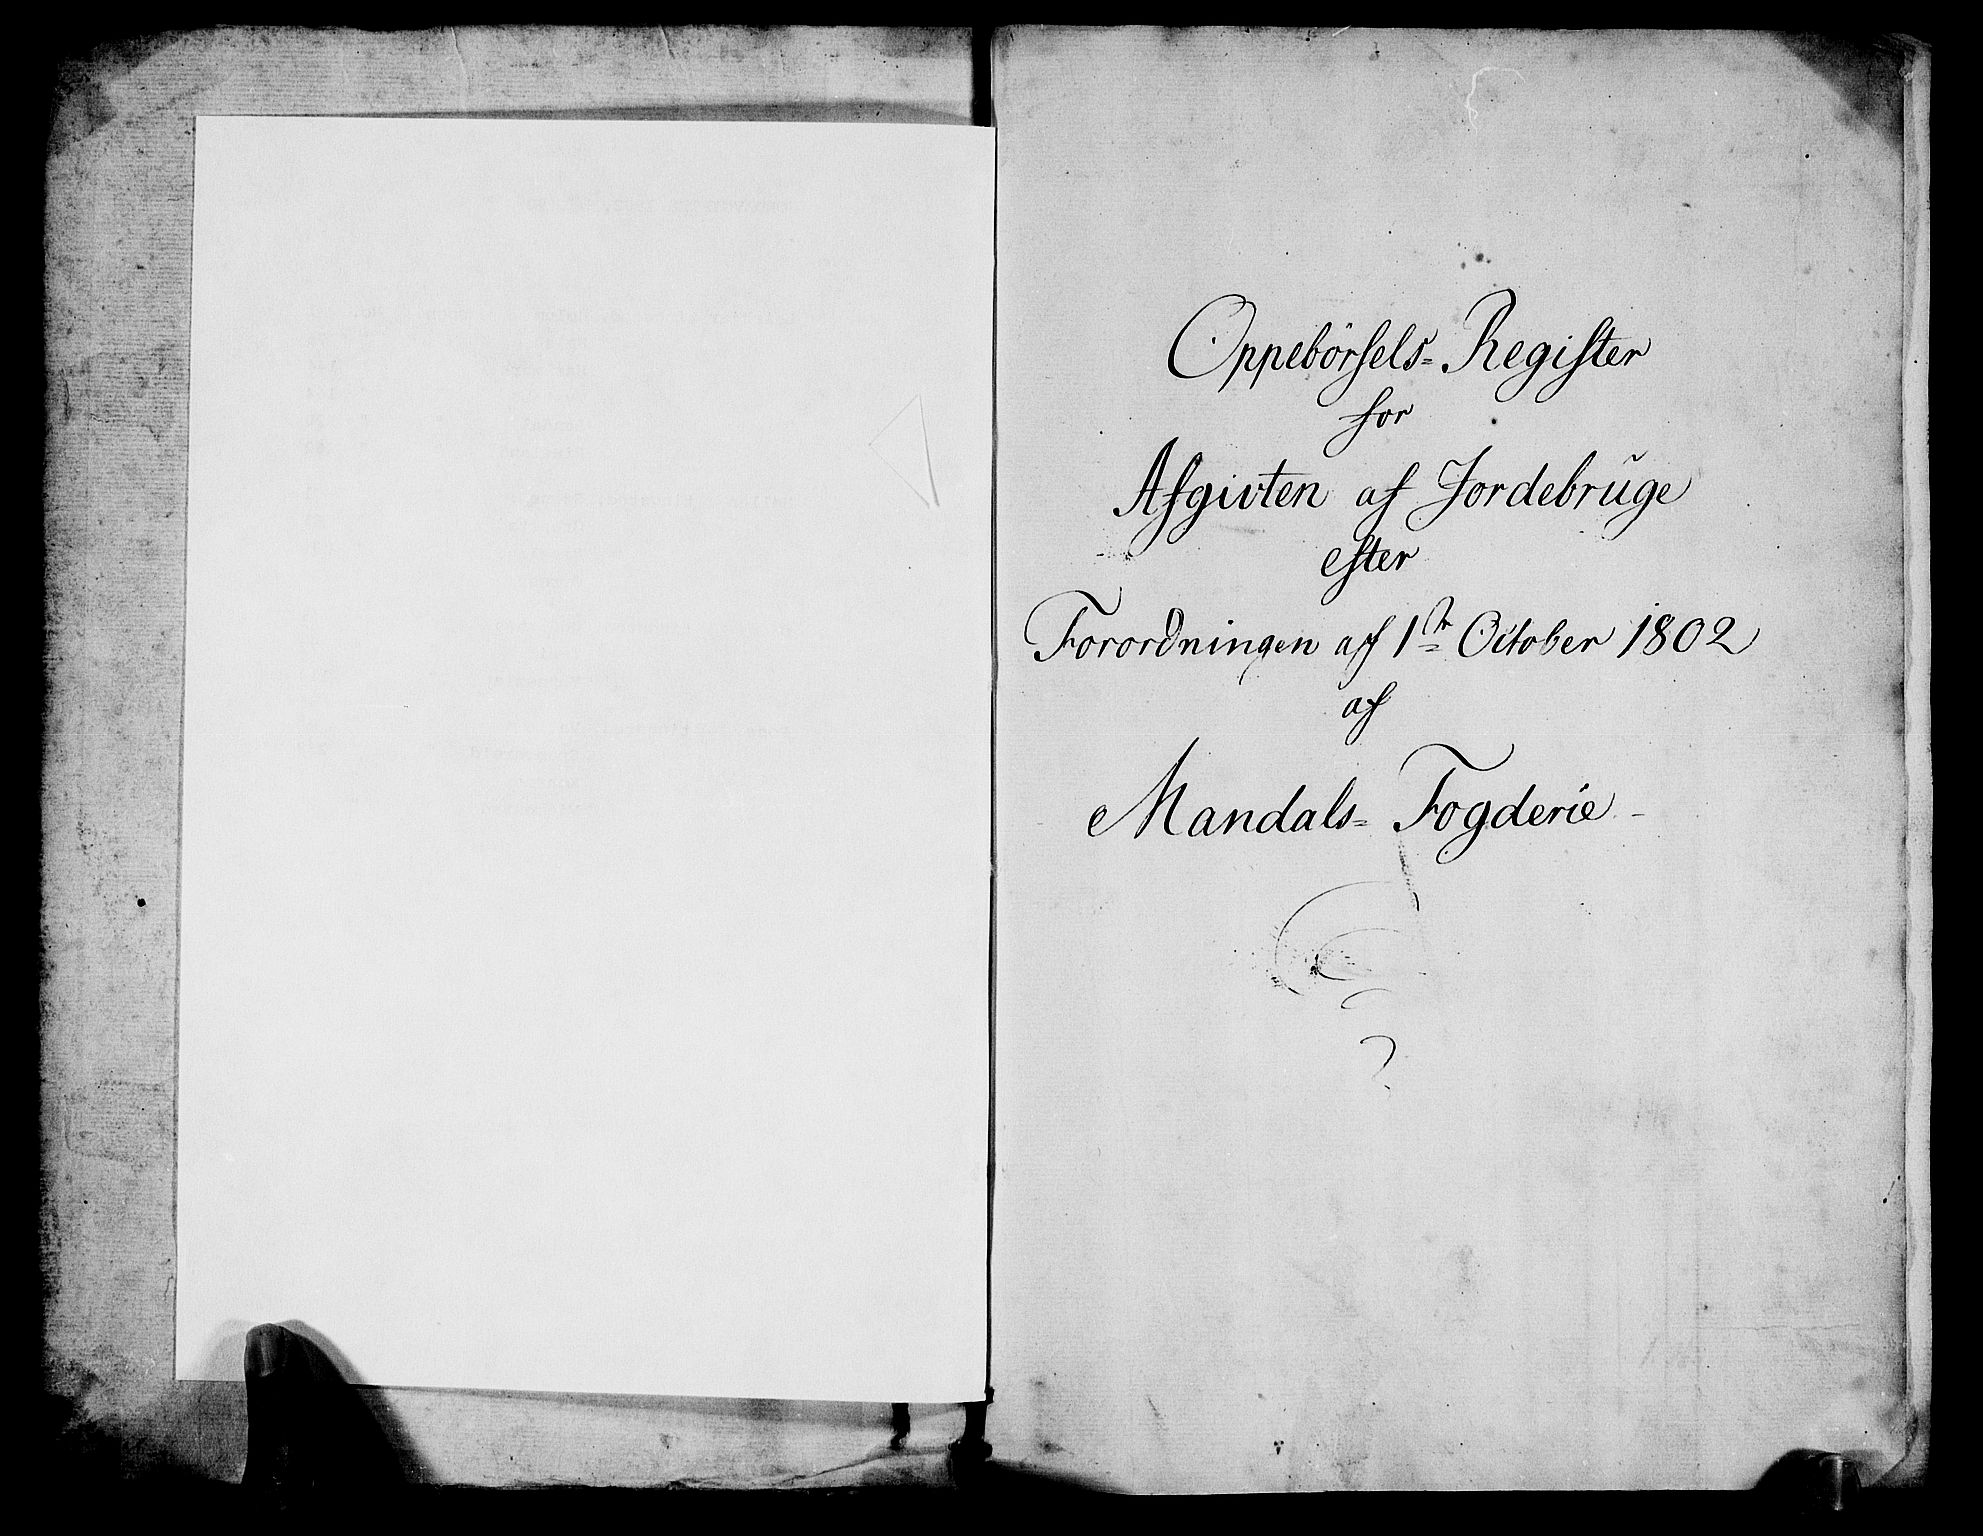 Oppebörsels- Register
for
Afgivten af Jordebrŭge
efter
Forordningen af 1te October 1802
af
Mandals- Fogderie